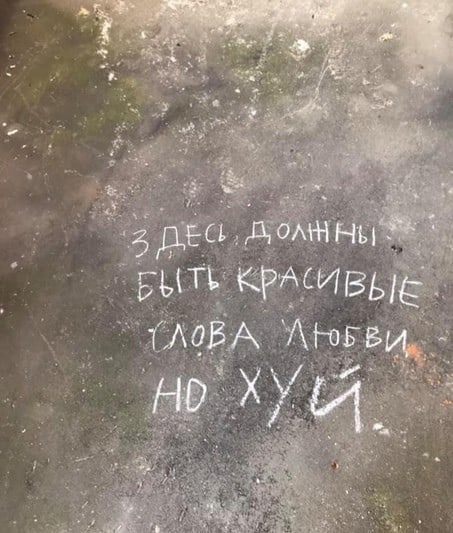 ЗДЕСЬ ДОЛЖНЫ
БЫТЬ КРАСИВЫЕ
СЛОВА ЛЮБВИ
НО ХУЙ.